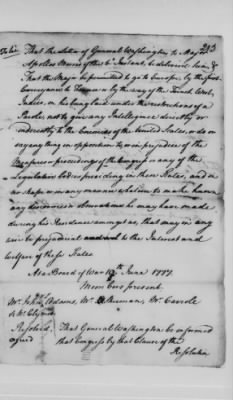 213
That the Letter of General Washington to Major
Apollos Morris of the 6th Instant, be delivered him, &
That the Major be permitted to go to Europe by the first
Conveyance to by the way of the French West
Indies, or to England under the restrictions of a
Parole; not to give any Intelligence directly or
indirectly to the Enemies of the United States, or do or
say any thing in opposition to, or in prejudice of the
Measures & proceedings of the Congress or any of the
Legislative Bodies presiding in these States, and in
no shape or in any manner relation to make known
any discoveries he may have made
during his Residence amongst us, that may in any
wise be prejudicial to the Interest and
Welfare of these States
At a Board of War 10th June 1777
Members present
Mr. John Adams, Mr. Sherman, Mr. Carrole
& Mr. Clymer
Resolved, That General Washington be informed
agreed that Congress by that Clause of the
Resolution